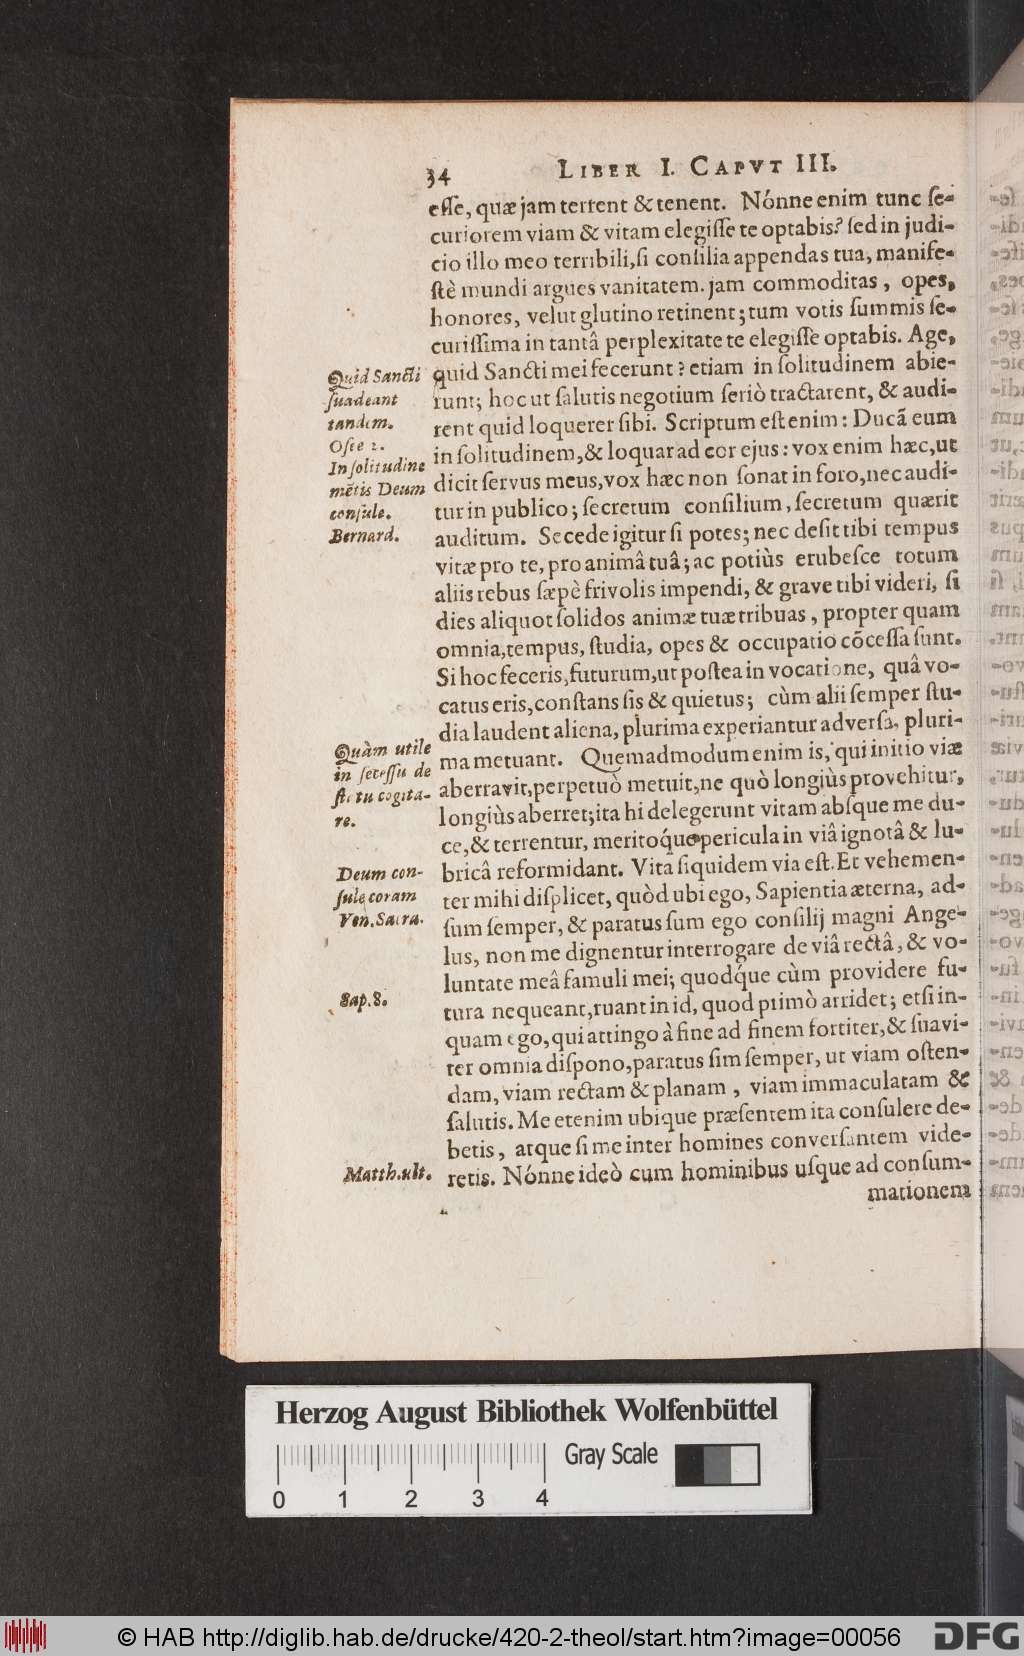 34 LIBER I. CAPVT III.
eſſe, quæ jam terrent & tenent. Nónne enim tunc ſe-
curiorem viam & vitam elegiſſe te optabis? ſed in judi-
cio illo meo terribili, ſi conſilia appendas tua, manife-
ſtè mundi argues vanitatem. jam commoditas, opes,
honores, velut glutino retinent; tum votis ſummis ſe-
curiſſima in tantâ perplexitate te elegiſſe optabis. Age,
quid Sancti mei fecerunt? etiam in ſolitudinem abie-
runt; hoc ut ſalutis negotium ſeriò tractarent, & audi-
rent quid loquerer ſibi. Scriptum eſt enim: Ducã eum
in ſolitudinem, & loquar ad cor ejus: vox enim hæc, ut
dicit ſervus meus, vox hæc non ſonat in foro, nec audi-
tur in publico; ſecretum conſilium, ſecretum quærit
auditum. Secede igitur ſi potes; nec deſit tibi tempus
vitæ pro te, pro animâ tuâ; ac potiùs erubeſce totum
aliis rebus ſæpè frivolis impendi, & grave tibi videri, ſi
dies aliquot ſolidos animæ tuæ tribuas, propter quam
omnia, tempus, ſtudia, opes & occupatio cõceſſa ſunt.
Si hoc feceris, futurum, ut poſtea in vocatione, quâ vo-
catus eris, conſtans ſis & quietus; cùm alii ſemper ſtu-
dia laudent aliena, plurima experiantur adverſa, pluri-
ma metuant. Quemadmodum enim is, qui initio viæ
aberravit, perpetuò metuit, ne quò longiùs provehitur,
longiùs aberret; ita hi delegerunt vitam abſque me du-
ce, & terrentur, meritoq́ue pericula in viâ ignotâ & lu-
bricâ reformidant. Vita ſiquidem via eſt. Et vehemen-
ter mihi diſplicet, quòd ubi ego, Sapientia æterna, ad-
ſum ſemper, & paratus ſum ego conſilij magni Ange-
lus, non me dignentur interrogare de viâ rectâ, & vo-
luntate meâ famuli mei; quodq́ue cùm providere fu-
tura nequeant, ruant in id, quod primò arridet; etſi in-
quam ego, qui attingo à fine ad finem fortiter, & ſuavi-
ter omnia diſpono, paratus ſim ſemper, ut viam oſten-
dam, viam rectam & planam, viam immaculatam &
ſalutis. Me etenim ubique præſentem ita conſulere de-
betis, atque ſi me inter homines converſantem vide-
retis. Nónne ideò cum hominibus uſque ad conſum-
mationem
Quid Sancti
ſuadeant
tandem.
Oſee 2.
In ſolitudine
mẽtis Deum
conſule.
Bernard.
Quàm utile
in ſeceſſu de
ſtatu cogita-
re.
Deum con-
ſule coram
Ven. Sacra.
Sap. 8.
Matth. ult.
Herzog August Bibliothek Wolfenbüttel
Gray Scale
0 1 2 3 4
© HAB http://diglib.hab.de/drucke/420-2-theol/start.htm?image=00056
DFG